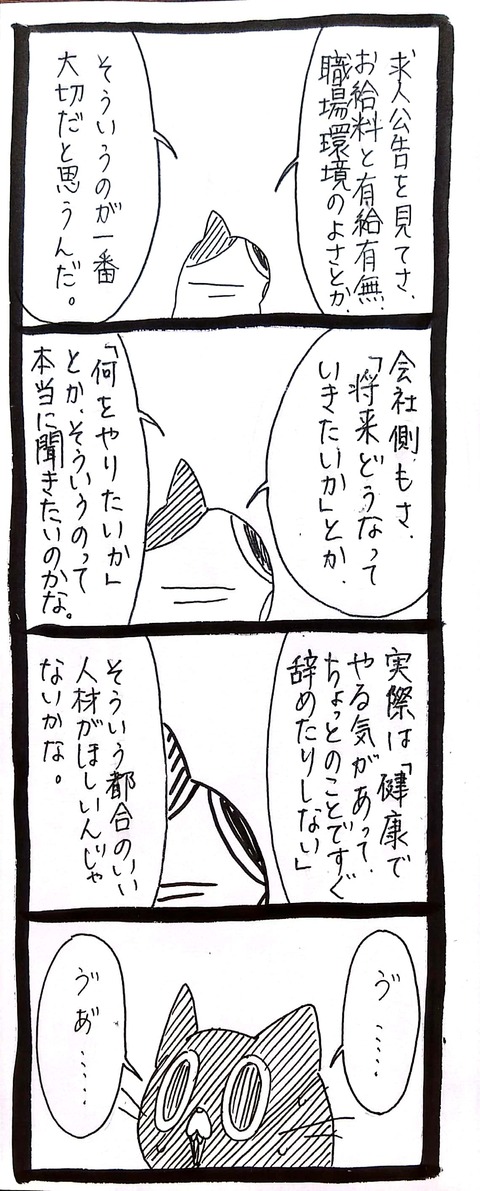 求人公告を見てさ、
お給料と有給有無、
職場環境のよさとか、
そういうのが一番
大切だと思うんだ。
会社側もさ、
「将来どうなって
いきたいか」とか、
「何をやりたいか」
とか、そういうのって
本当に聞きたいのかな。
実際は「健康で
やる気があって、
ちょっとのことですぐ
辞めたりしない」
そういう都合のいい
人材がほしいんじゃ
ないかな。
ゔ……
ゔあ゙……